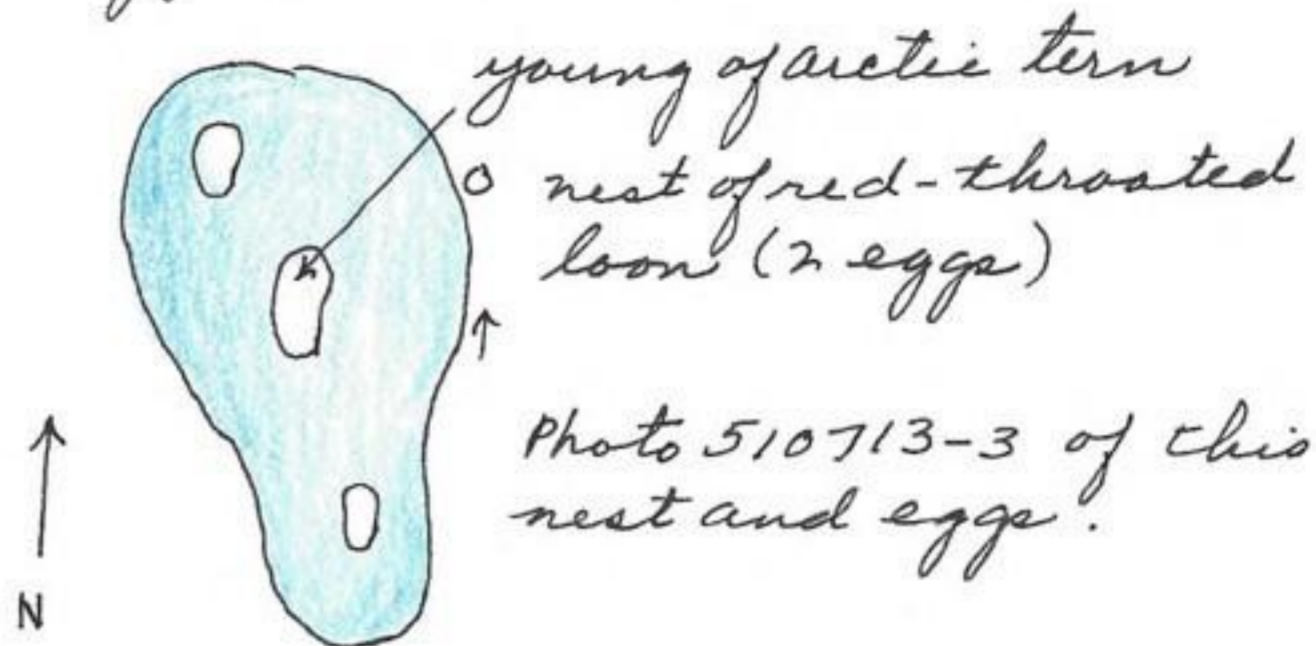 young of arctic tern
nest of red-throated
loon (2 eggs)
Photo 510713-3 of this
nest and eggs.
N